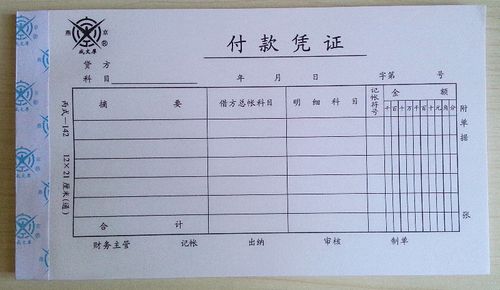 燕 京
®
成文厚
付款凭证
贷方
科目
年 月 日 字第 号
摘要 借方总帐科目 明细科目 记帐符号 金额
千百十万千百十元角分
合计
附单据 张
财务主管 记帐 出纳 审核 制单
丙式—142 12×21厘米(通)